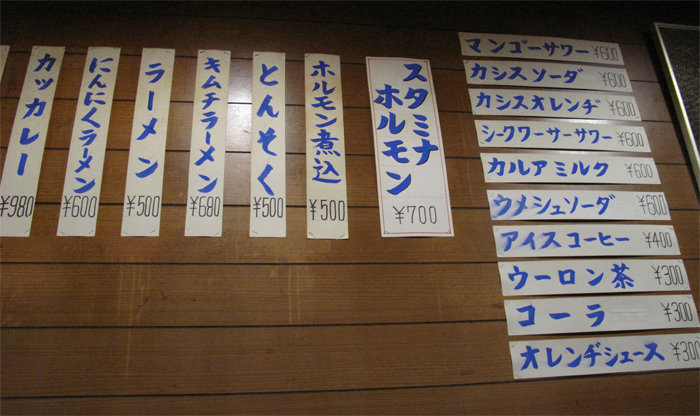 カッカレー
¥980
にんにくラーメン
¥600
ラーメン
¥500
キムチラーメン
¥680
とんそく
¥500
ホルモン煮込
¥500
スタミナ
ホルモン
¥700
マンゴーサワー ¥600
カシスソーダ ¥600
カシスオレンヂ ¥600
シークワーサーサワー ¥600
カルアミルク ¥600
ウメシュソーダ ¥600
アイスコーヒー ¥400
ウーロン茶 ¥300
コーラ ¥300
オレンヂジュース ¥300